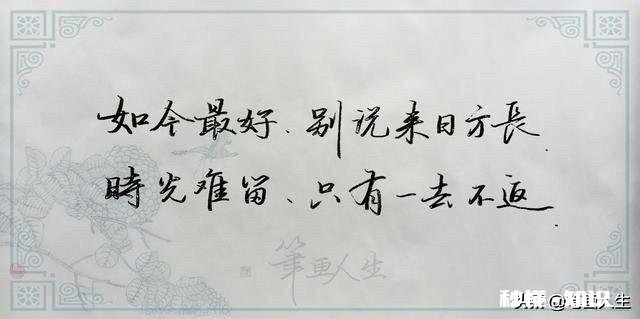 如今最好、别说来日方長.
時光难留、只有一去不返.
筆画人生
秒懂 知识